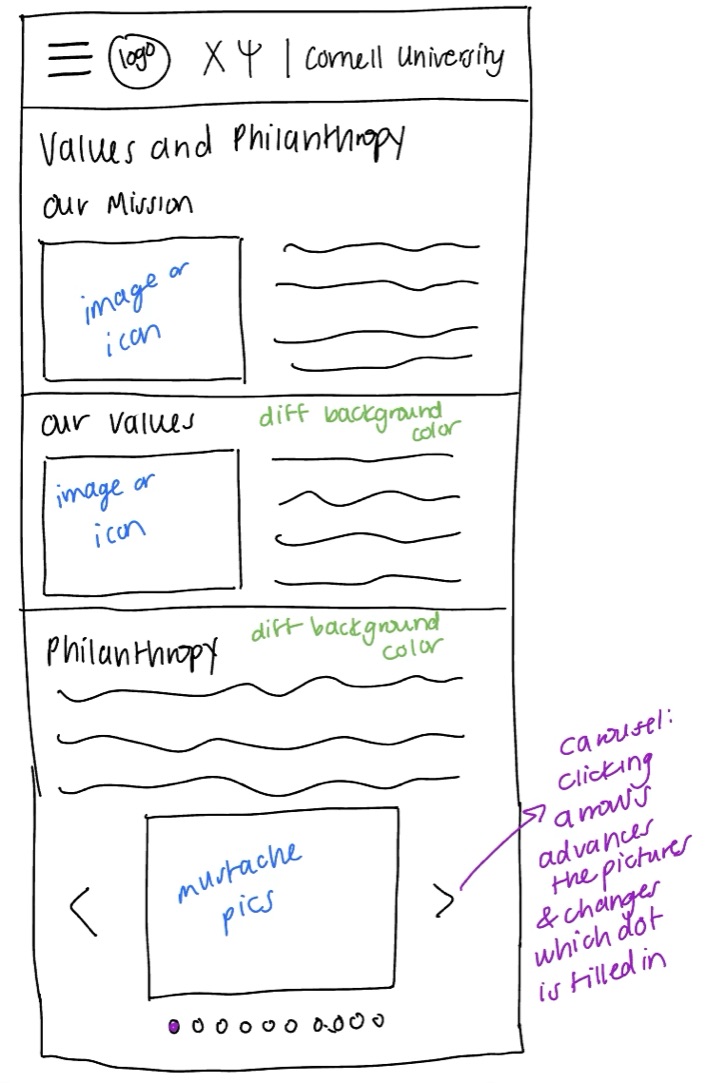 logo ΧΨ | Cornell University
Values and Philanthropy
Our Mission
image or
icon
Our Values
diff background
color
image or
icon
Philanthropy
diff background
color
mustache
pics
carousel:
clicking
arrows
advances
the pictures
& changes
which dot
is filled in